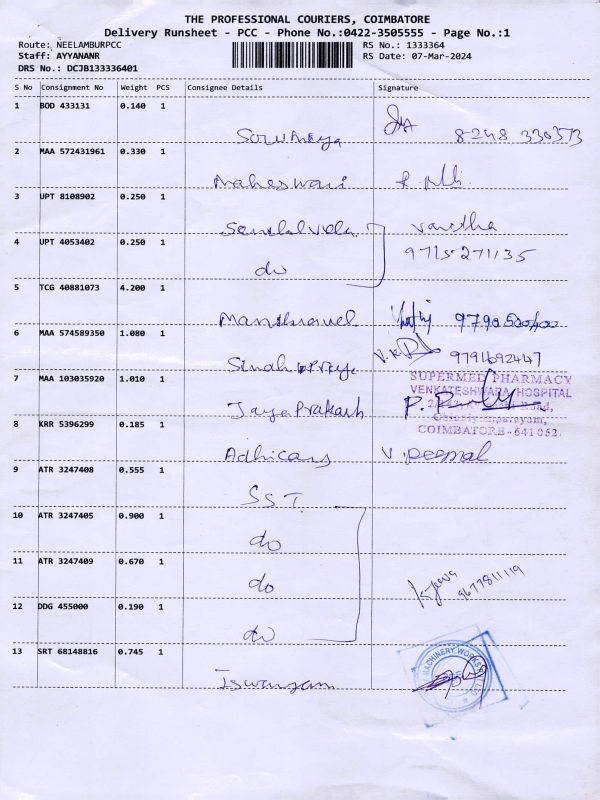 THE PROFESSIONAL COURIERS, COIMBATORE
Delivery Runsheet - PCC - Phone No.:0422-3505555 - Page No.:1
Route: NEELAMBURPCC RS No.: 1333364
Staff: AYYANANR RS Date: 07-Mar-2024
DRS No.: DCJB133336401
S No Consignment No Weight PCS Consignee Details Signature
1 BOD 433131 0.140 1
8248 330573
2 MAA 572431961 0.330 1
Maheswari
3 UPT 8108902 0.250 1
4 UPT 4053402 0.250 1
do 97152 71135
5 TCG 40881073 4.200 1
6 MAA 574589350 1.080 1
9791692447
7 MAA 103035920 1.010 1
SUPERMED PHARMACY
VENKATESHWARA HOSPITAL
Road,
Jaya Prakash
COIMBATORE - 641 062.
8 KRR 5396299 0.185 1
9 ATR 3247408 0.555 1
S.S.T.
10 ATR 3247405 0.900 1
do
11 ATR 3247409 0.670 1
do 9677811119
12 DDG 455000 0.190 1
do
13 SRT 68148816 0.745 1
MACHINERY WORKS